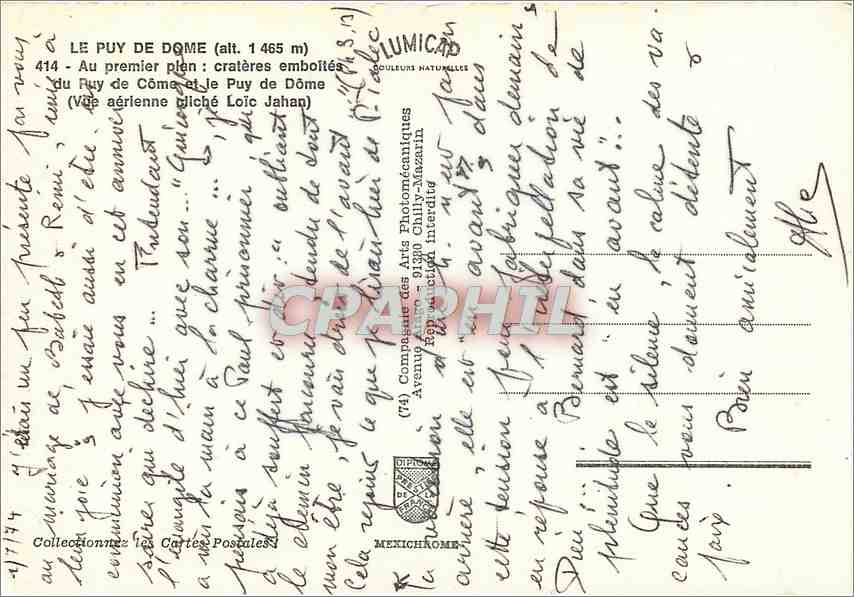 LE PUY DE DOME (alt. 1 465 m)
414 - Au premier plan : cratères emboîtés
du Puy de Côme et le Puy de Dôme
(Vue aérienne cliché Loïc Jahan)
LUMICAP
COULEURS NATURELLES
(74) Compagnie des Arts Photomécaniques
Avenue Arago - 91320 Chilly-Mazarin
Reproduction interdite
DIPLOME
PRESTIGE
DE LA
FRANCE
MEXICHROME
Collectionnez les Cartes Postales !
CPAPHIL
/7/74 J'étais un peu présente par vous
au mariage de Babeth & Rémi, unis à
leur joie & j'essaie aussi d'être en
communion avec vous en cet anniver
saire qui déchire... Entendant
l'évangile d'hier avec son... "Quiconque
a mis la main à la charrue..., je
pensais à ce Paul prisonnier qui
a déjà souffert et dit : " oubliant
le chemin parcouru, tendu de tout
mon être, je vais droit de l'avant" (Ph 3, 13)
Cela rejoint ce que je lisais hier de P.
La n'est jamais en
arrière, elle est "en avant" & dans
cette tension pour fabriquer demain
en réponse à l'interpellation de
Dieu : Bernard dans sa vie de
plénitude est "en avant"...
Que le silence, le calme des va
cances vous donnent détente &
paix. Bien amicalement